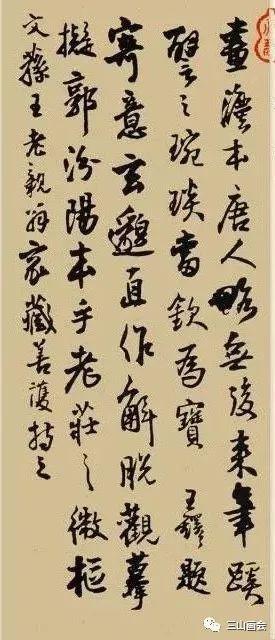 畫灋本唐人略無後來筆蹊
譬之琬琰當欽為寶 王鐸題
寄意玄邈直作解脫觀摹
擬郭汾陽本乎老莊之微樞
文蓀王老親翁家藏善護持之
三山画会